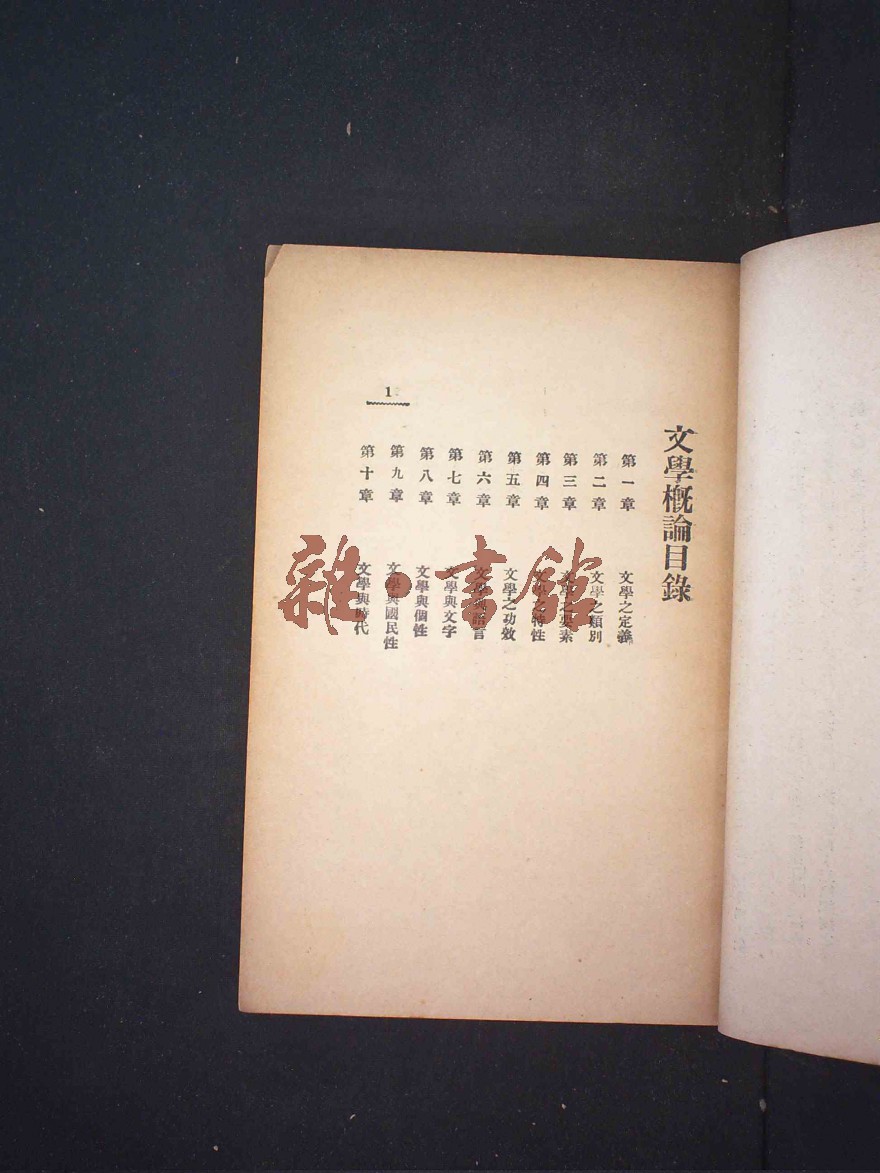 文學概論目錄
第一章 文學之定義
第二章 文學之類別
第三章 文學之要素
第四章 文學之特性
第五章 文學之功效
第六章 文學與語言
第七章 文學與文字
第八章 文學與個性
第九章 文學與國民性
第十章 文學與時代
1
雜·書館